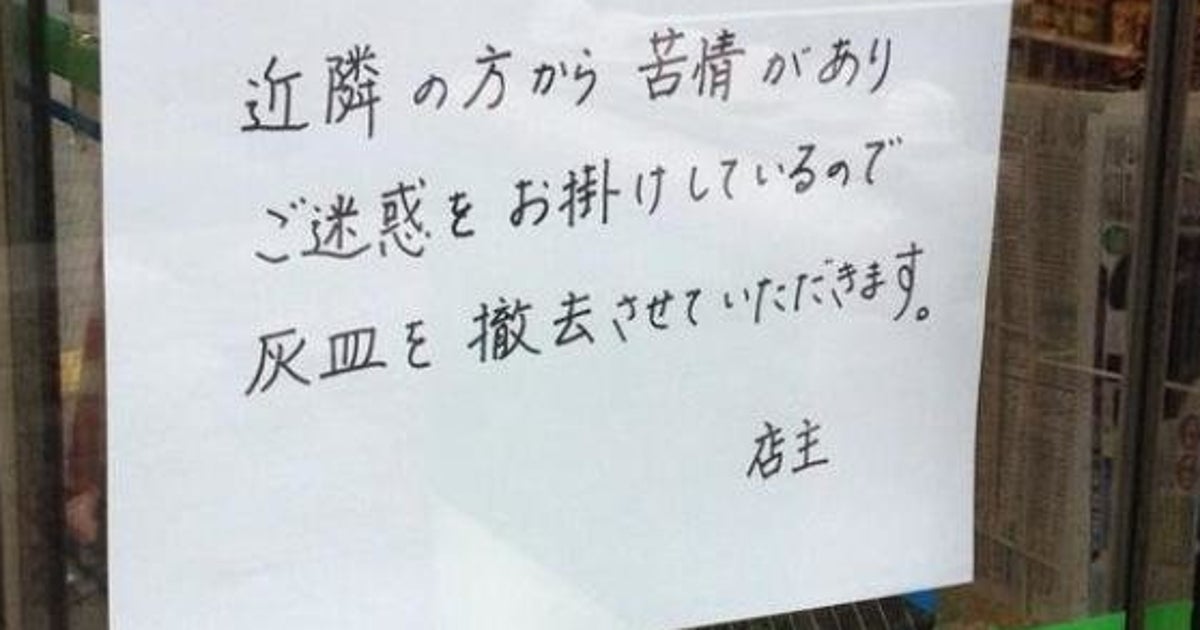 近隣の方から苦情があり
ご迷惑をお掛けしているので
灰皿を撤去させていただきます。
店主